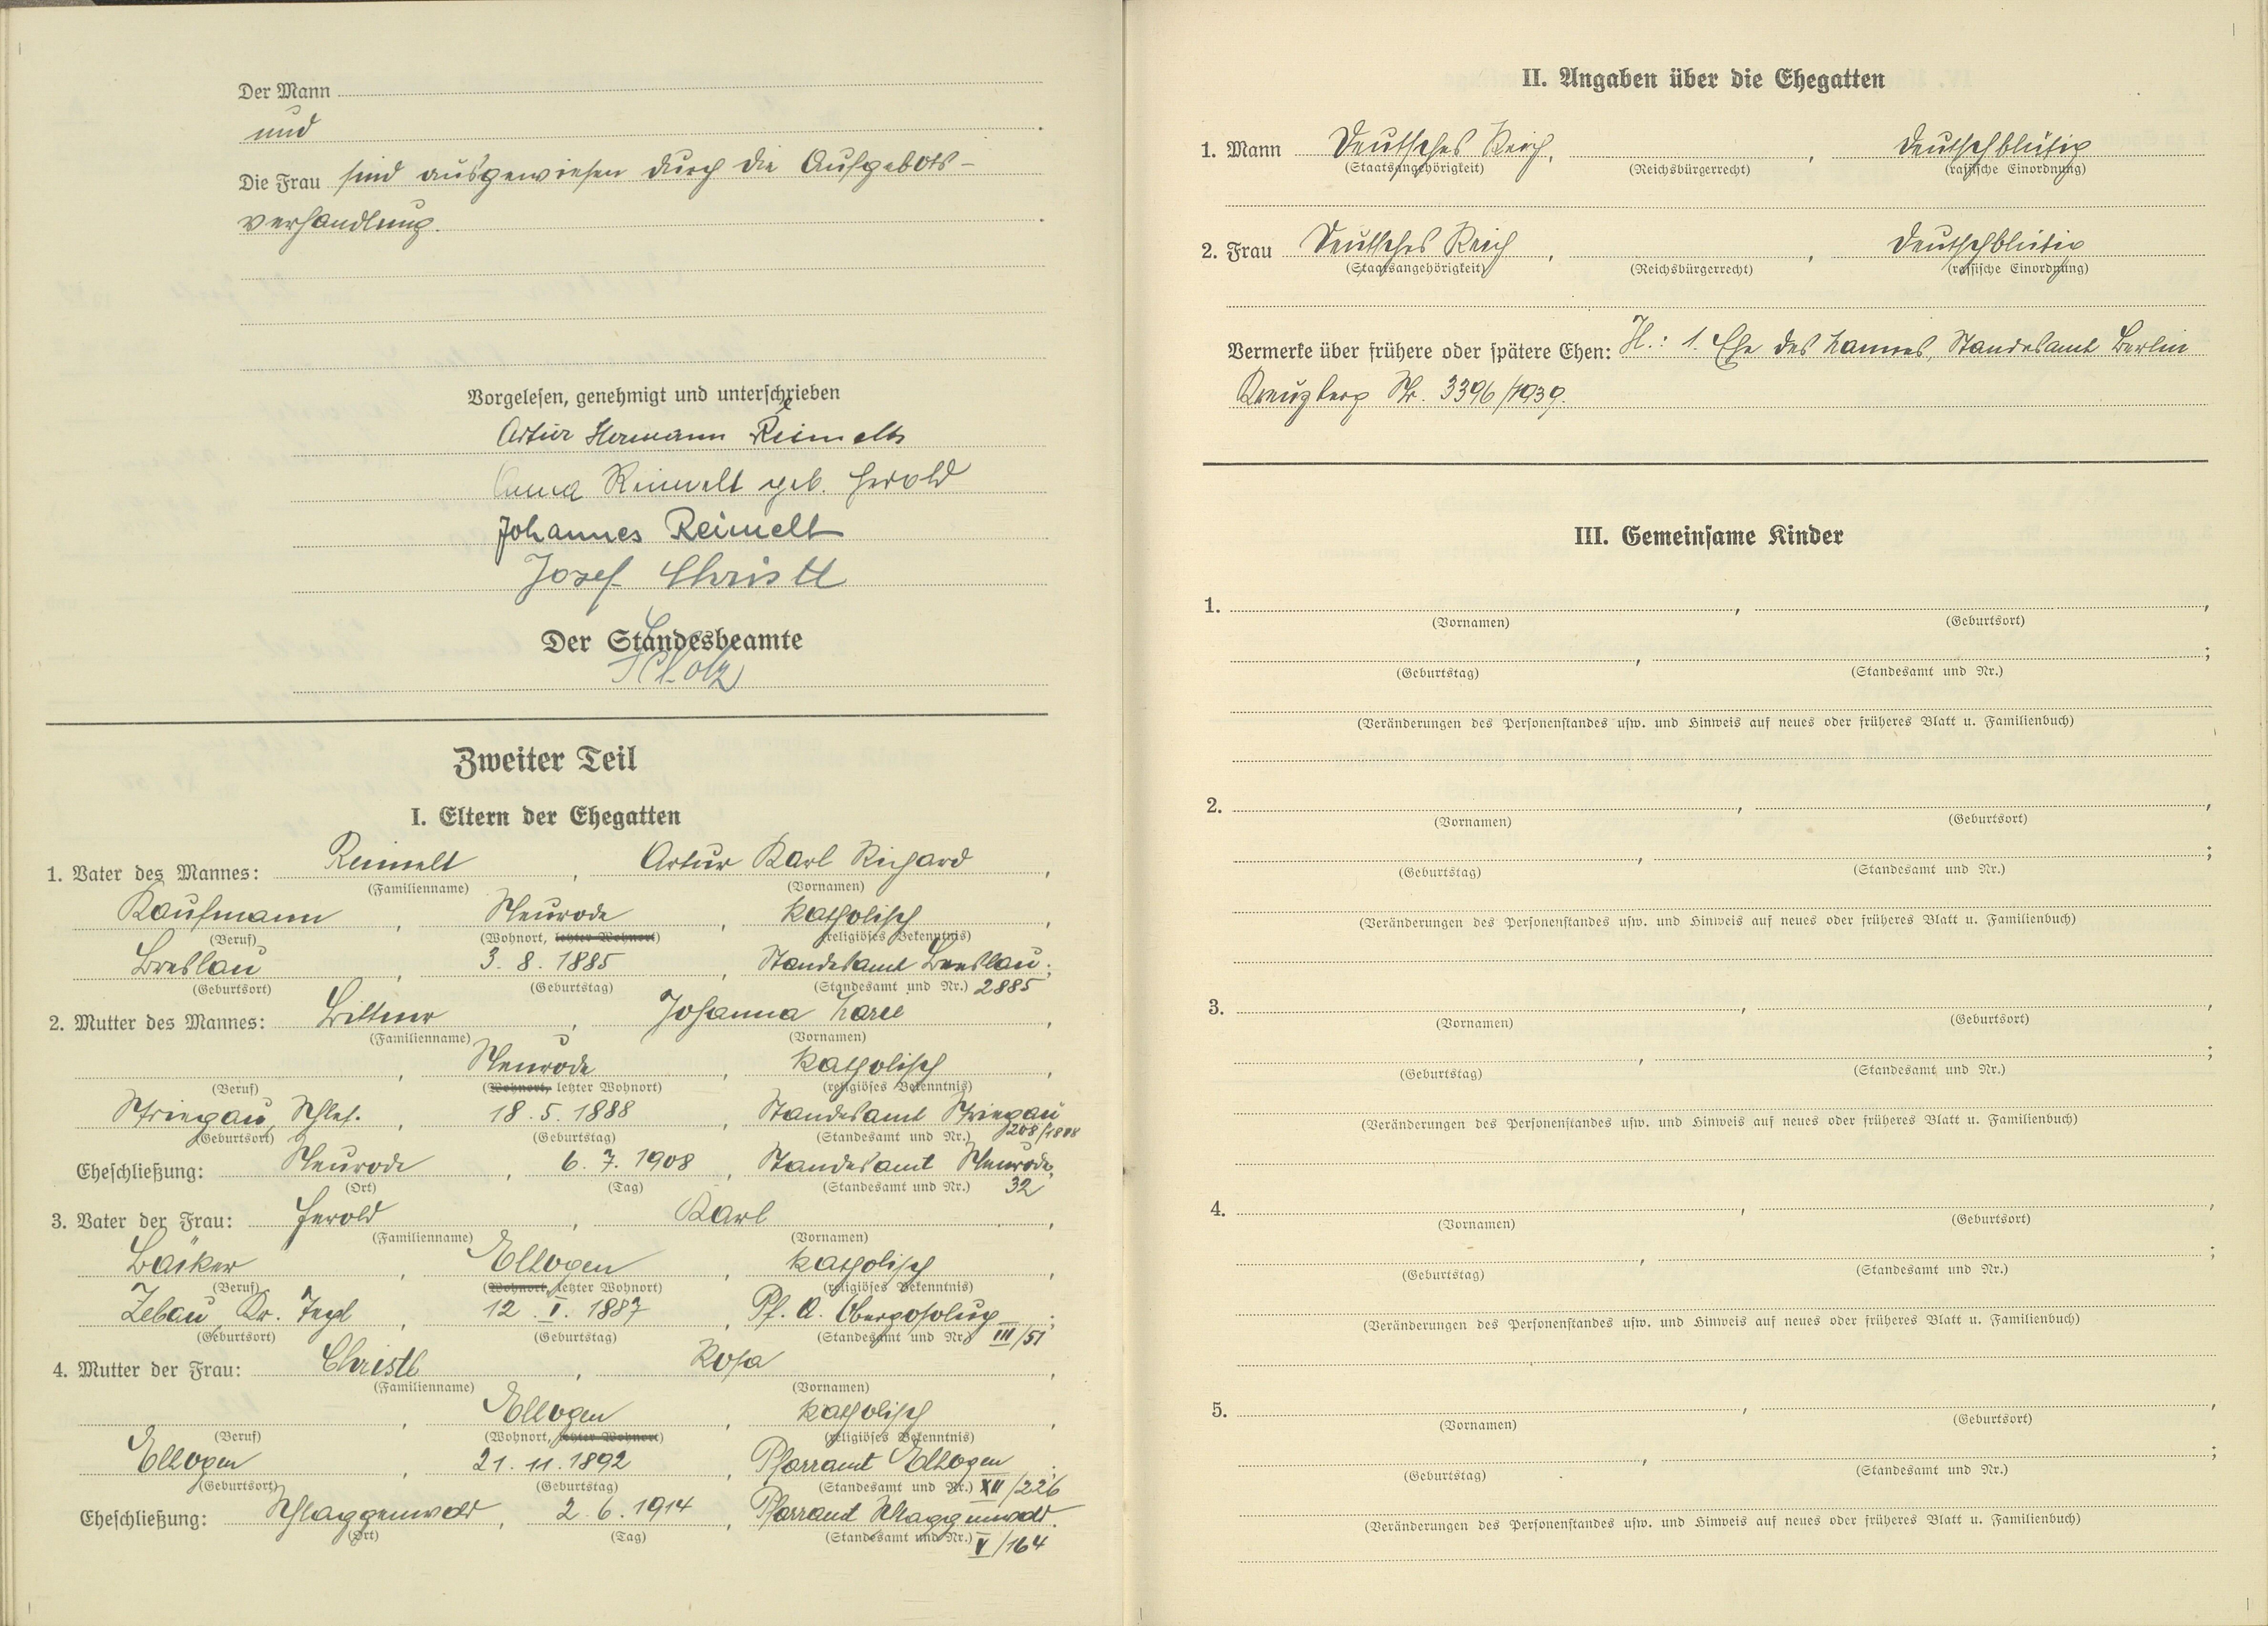 Der Mann
und
Die Frau sind ausgewiesen durch die Aufgebots-
verhandlung.
Vorgelesen, genehmigt und unterschrieben
Artur Hermann Reimelt
Anna Reimelt geb. Herold
Johannes Reimelt
Josef Christl
Der Standesbeamte
Scholz
Zweiter Teil
I. Eltern der Ehegatten
1. Vater des Mannes: Reimelt, Artur Karl Richard,
(Familienname) (Vornamen)
Kaufmann, Neurode, katholisch,
(Beruf) (Wohnort, letzter Wohnort) (religiöses Bekenntnis)
Breslau, 3. 8. 1885, Standesamt Breslau;
(Geburtsort) (Geburtstag) (Standesamt und Nr.) 2885
2. Mutter des Mannes: Bittner, Johanna Marie,
(Familienname) (Vornamen)
, Neurode, katholisch,
(Beruf) (Wohnort, letzter Wohnort) (religiöses Bekenntnis)
Striegau, Schles., 18. 5. 1888, Standesamt Striegau
(Geburtsort) (Geburtstag) (Standesamt und Nr.) 208/1888
Eheschließung: Neurode, 6. 7. 1908, Standesamt Neurode,
(Ort) (Tag) (Standesamt und Nr.) 32
3. Vater der Frau: Herold, Karl,
(Familienname) (Vornamen)
Bäcker, Elbogen, katholisch,
(Beruf) (Wohnort, letzter Wohnort) (religiöses Bekenntnis)
Zebau, Kr. Tepl, 12. I. 1887, Pf. A.;
(Geburtsort) (Geburtstag) (Standesamt und Nr.) III/51
4. Mutter der Frau: Christl, Rosa,
(Familienname) (Vornamen)
, Elbogen, katholisch,
(Beruf) (Wohnort, letzter Wohnort) (religiöses Bekenntnis)
Elbogen, 21. 11. 1892, Pfarramt Elbogen;
(Geburtsort) (Geburtstag) (Standesamt und Nr.) XII/226
Eheschließung: Schlaggenwald, 2. 6. 1914, Pfarramt Schlaggenwald.
(Ort) (Tag) (Standesamt und Nr.) V/164
II. Angaben über die Ehegatten
1. Mann Deutsches Reich, , deutschblütig
(Staatsangehörigkeit) (Reichsbürgerrecht) (rassische Einordnung)
2. Frau Deutsches Reich, , deutschblütig
(Staatsangehörigkeit) (Reichsbürgerrecht) (rassische Einordnung)
Vermerke über frühere oder spätere Ehen: H.: 1. Ehe des Mannes, Standesamt Berlin
Kreuzberg Nr. 3396/1939.
III. Gemeinsame Kinder
1. , ,
(Vornamen) (Geburtsort)
, ;
(Geburtstag) (Standesamt und Nr.)
(Veränderungen des Personenstandes usw. und Hinweis auf neues oder früheres Blatt u. Familienbuch)
2. , ,
(Vornamen) (Geburtsort)
, ;
(Geburtstag) (Standesamt und Nr.)
(Veränderungen des Personenstandes usw. und Hinweis auf neues oder früheres Blatt u. Familienbuch)
3. , ,
(Vornamen) (Geburtsort)
, ;
(Geburtstag) (Standesamt und Nr.)
(Veränderungen des Personenstandes usw. und Hinweis auf neues oder früheres Blatt u. Familienbuch)
4. , ,
(Vornamen) (Geburtsort)
, ;
(Geburtstag) (Standesamt und Nr.)
(Veränderungen des Personenstandes usw. und Hinweis auf neues oder früheres Blatt u. Familienbuch)
5. , ,
(Vornamen) (Geburtsort)
, ;
(Geburtstag) (Standesamt und Nr.)
(Veränderungen des Personenstandes usw. und Hinweis auf neues oder früheres Blatt u. Familienbuch)